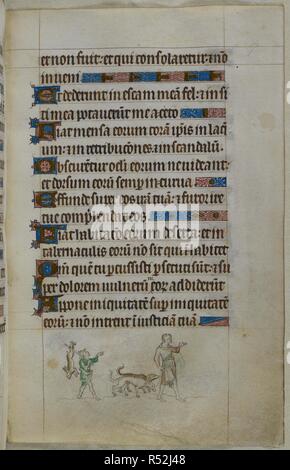 et non fuit: et qui consolaretur: et nō
inveni
Et dederunt in escam meā fel: et in si
ti mea potaverunt me aceto
Fiat mensa eorum corā ipsis in laq̄
um: et in retribuciones et in scandalū
Obscurētur oculi eorum ne videant:
et dorsum eorū semper incurva
Effunde super eos irā tuā: et furor ire
tue comprehendat eos
Fiat habitacio eorum deserta: et in
tabernaculis eorū nō sit qui habitet
quem tu percussisti persecuti sūt: et su
per dolorem vulnerū meorum addiderūt
Appone iniquitatē super iniquitatē
eorū: et nō intrent in iusticiā tuā
alamy stock photo
R52J48
www.alamy.com